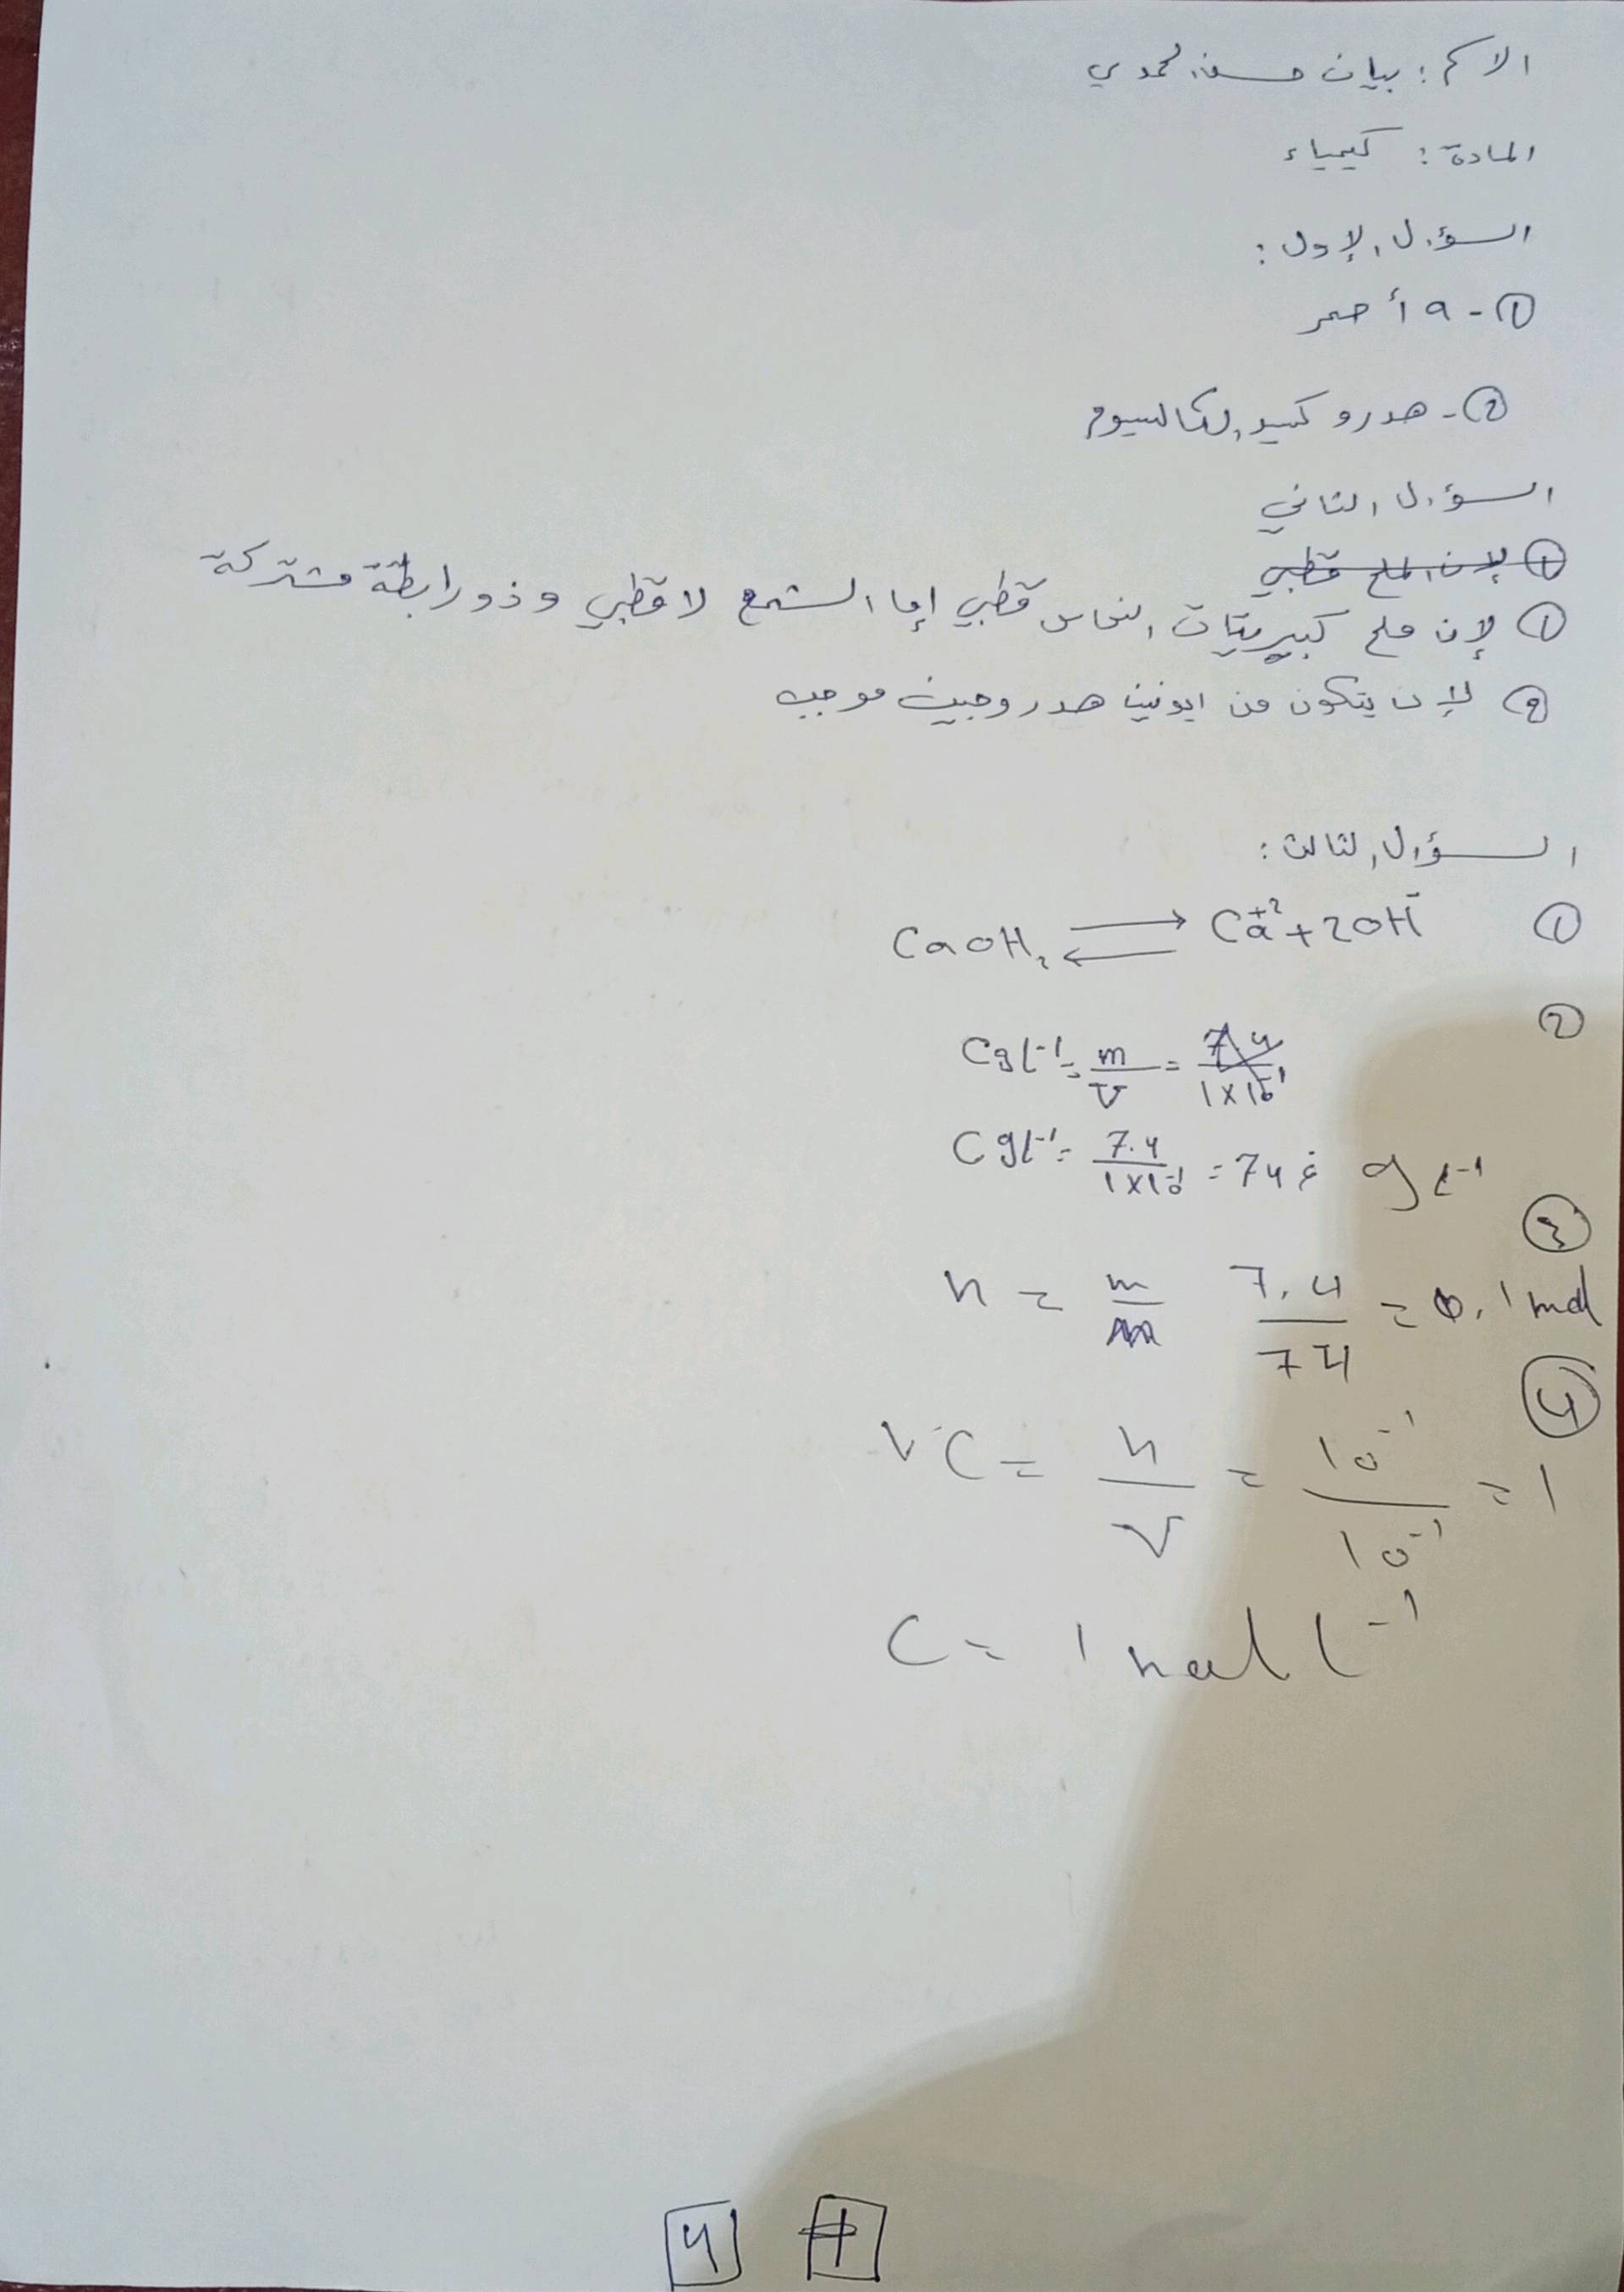 الاسم : بيان حسن المحمدي
المادة : كيمياء
السؤال الاول :
① - a أحمر
② - هدروكسيد الكالسيوم
السؤال الثاني
① لإن الملح قطبي
① لإن ملح كبيريتات النحاس قطبي إما الشمع لا قطبي و ذو رابطة مشتركة
② لإن يتكون من ايونين هدروجين موجب
السؤال الثالث :
① CaOH₂ ⇌ Ca⁺² + 2OH⁻
②
Cgl⁻¹ = m/v = 7.4/1×10⁻¹
Cgl⁻¹ = 7.4/1×10⁻¹ = 74 g l⁻¹
③
n = m/m 7.4/74 = 0.1 mol
④
C = n/v = 10⁻¹/10⁻¹ = 1
C = 1 mol l⁻¹
4